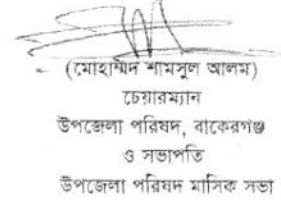 (মোহাম্মদ শামসুল আলম)
চেয়ারম্যান
উপজেলা পরিষদ, বাকেরগঞ্জ
ও সভাপতি
উপজেলা পরিষদ মাসিক সভা